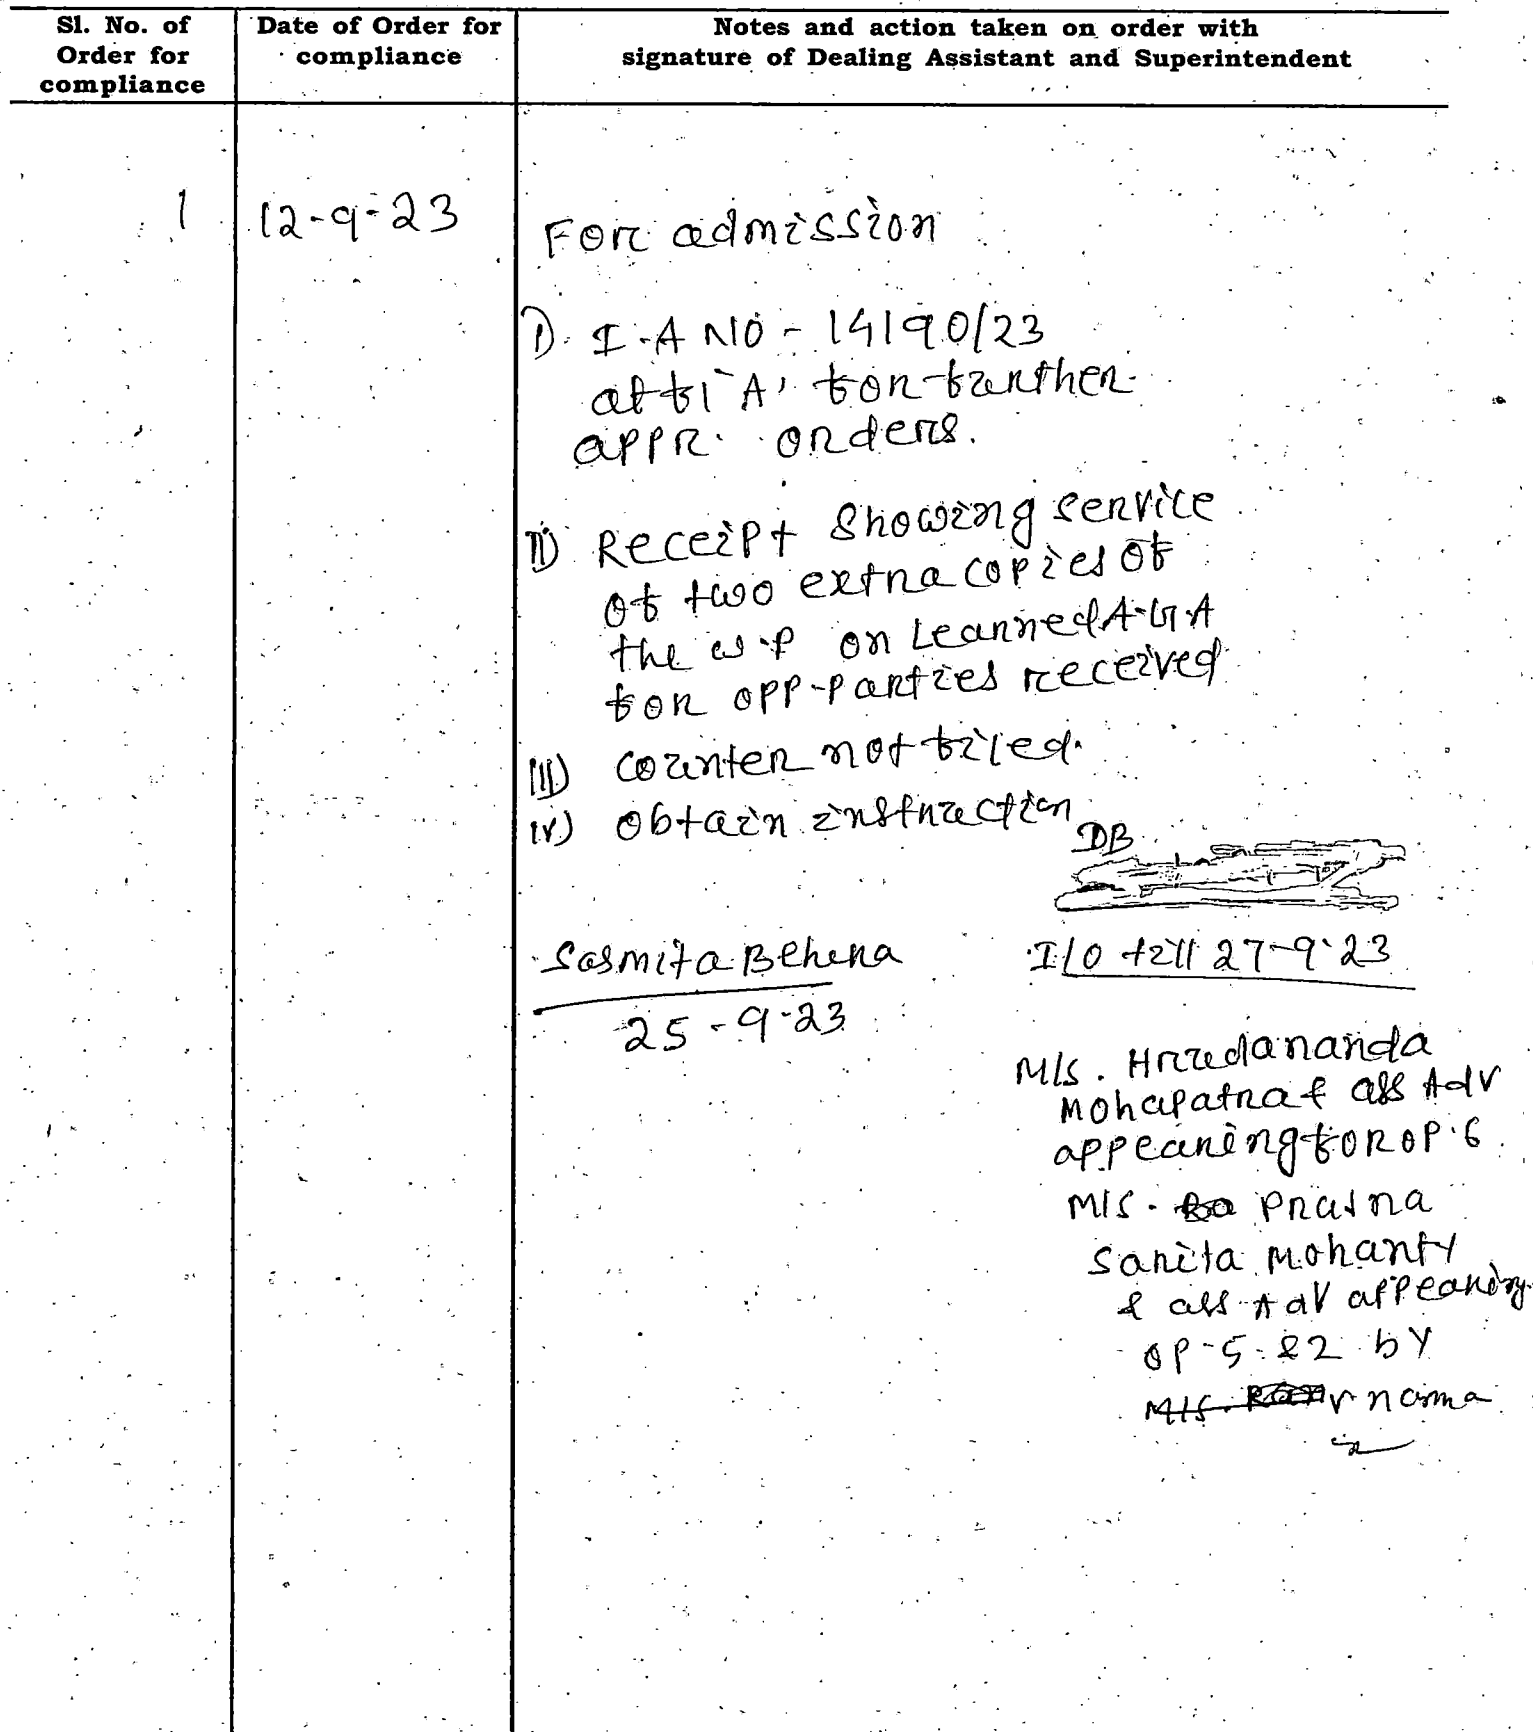 Sl. No. of
Order for
compliance
Date of Order for
compliance
Notes and action taken on order with
signature of Dealing Assistant and Superintendent
1
12-9-23
For admission
I) I.A NO - 14190/23
at fl 'A' for further
appr. orders.
II) Receipt showing service
of two extra copies of
the W.P on Learned A.G.A
for opp-parties received
III) Counter not filed.
IV) Obtain instruction
DB
Sasmita Behera
25-9-23
I/O till 27-9-23
M/S. Hrudananda
Mohapatra & ass Adv
appearing for OP.6
M/S.
Sarita Mohanty
& ass Adv appearing
OP-5 & 2 by
M/S. v nama